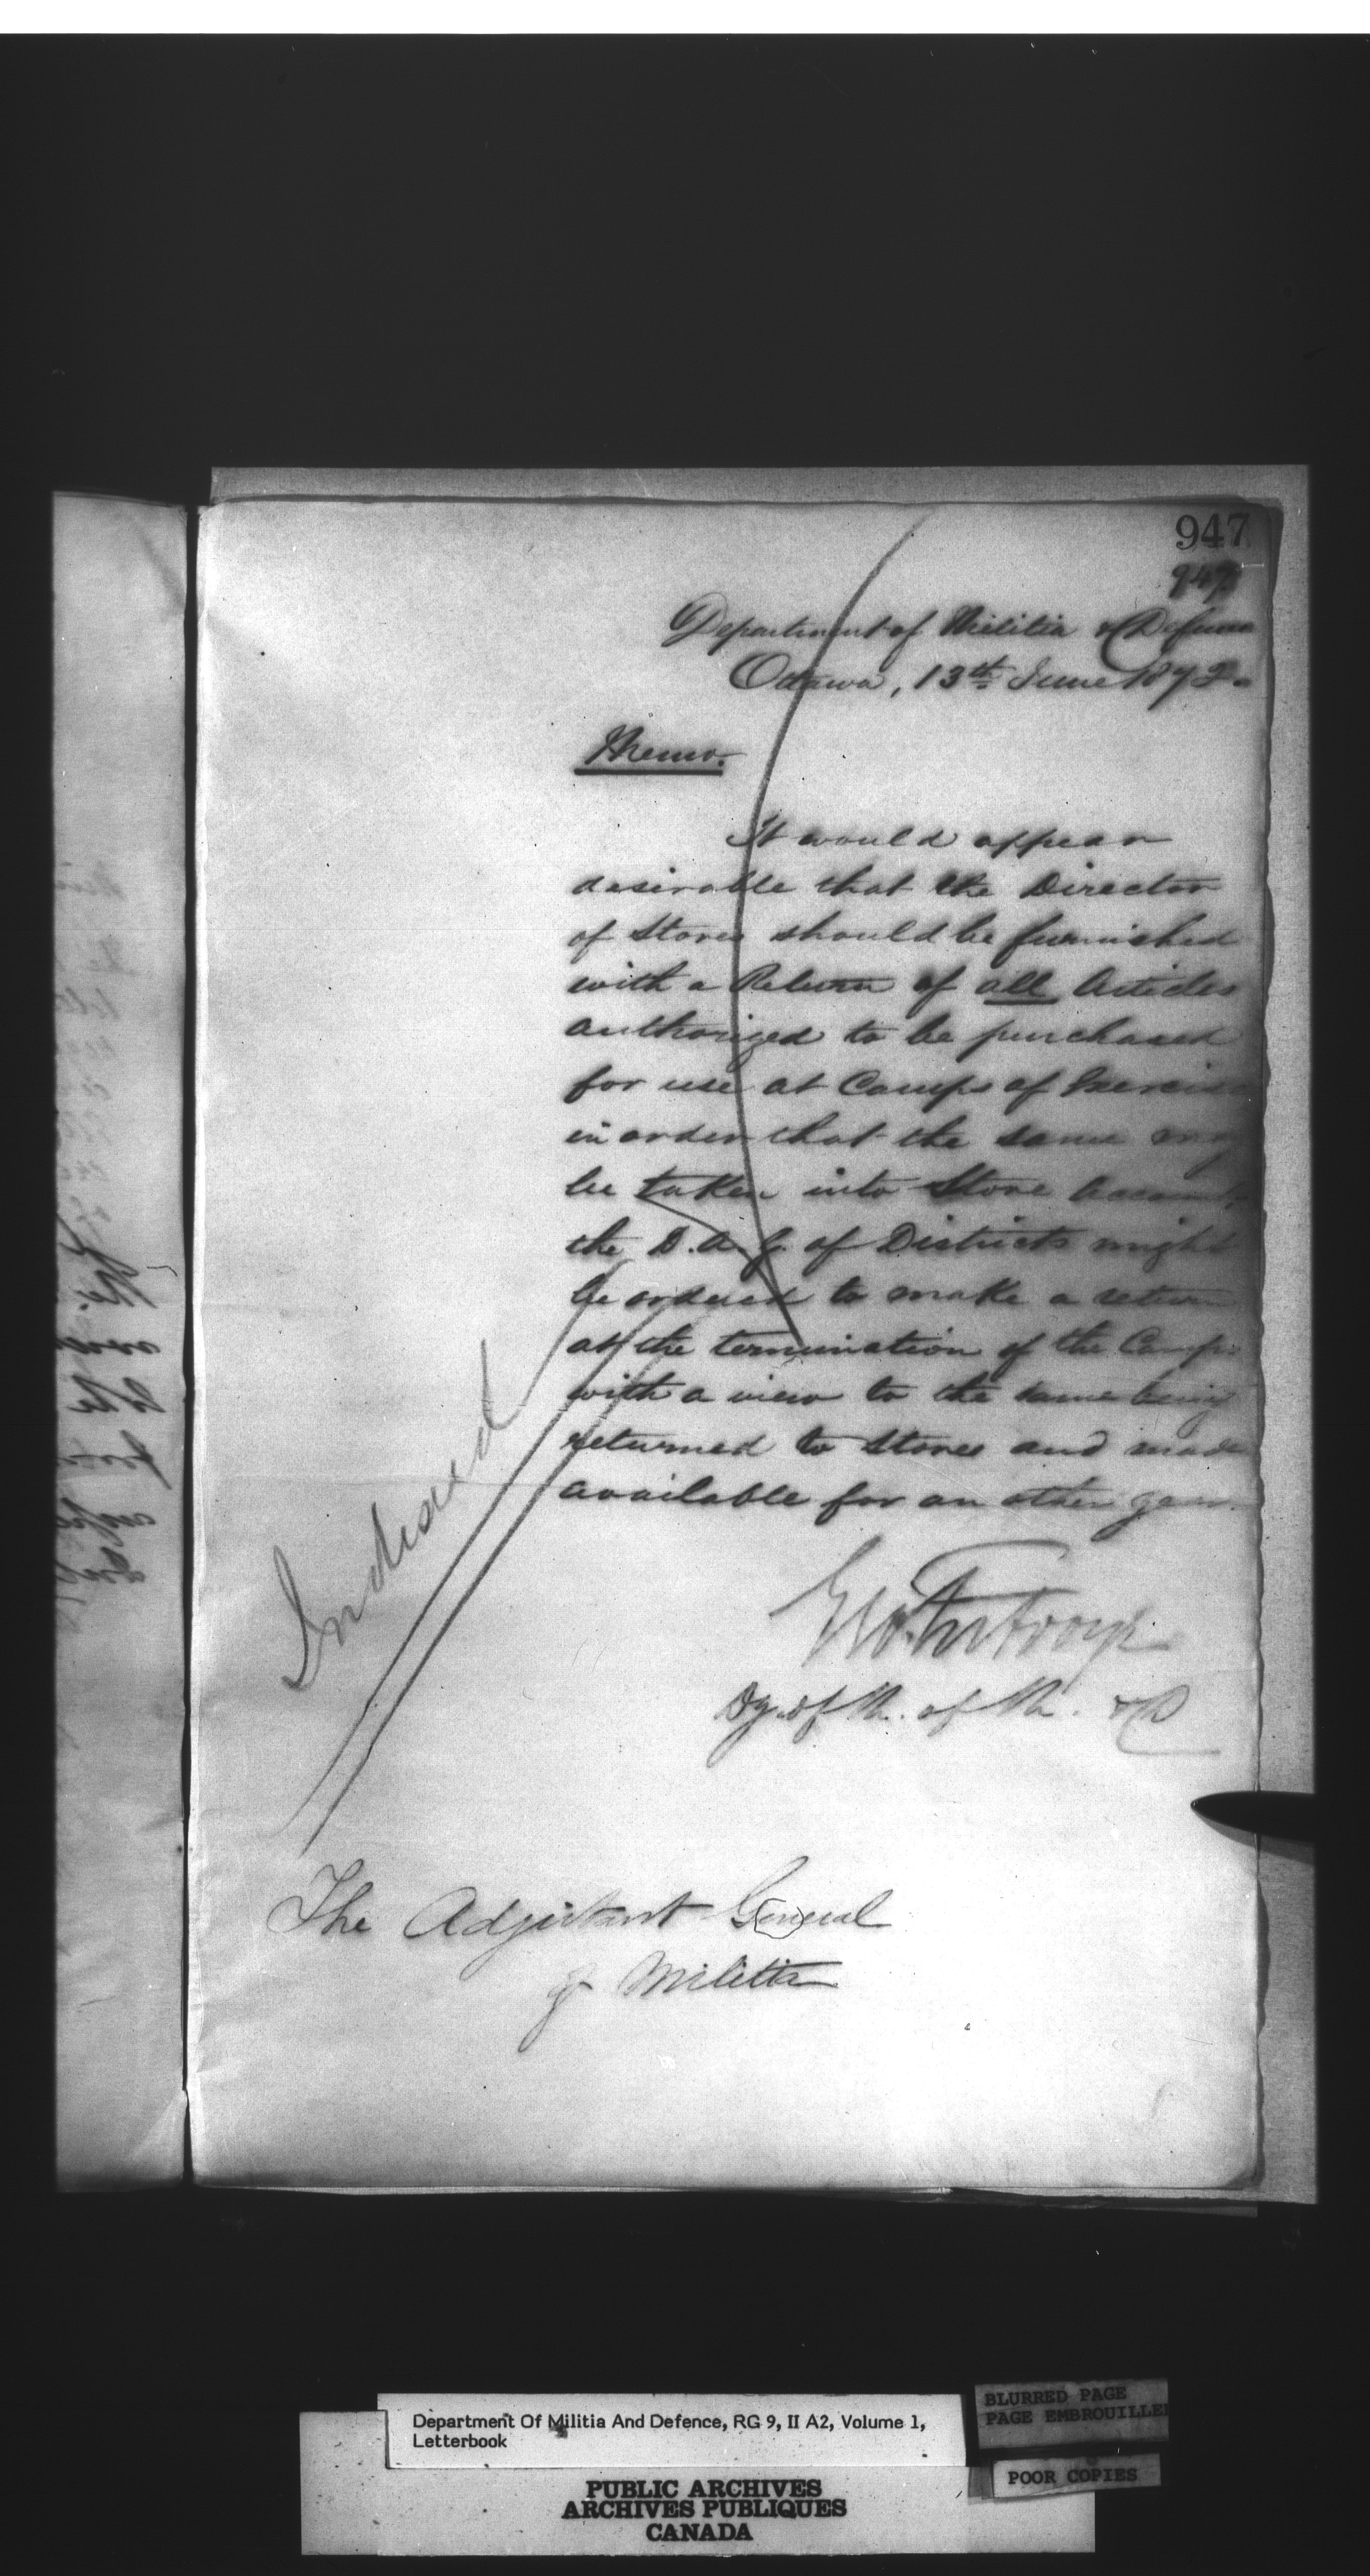 947
947
Department of Militia & Defence
Ottawa, 13th June 1872.
Memo.
It would appear
desirable that the Director
of Stores should be furnished
with a Return of all Articles
authorized to be purchased
for use at Camps of Exercise
in order that the same may
be taken into Store Account,
the D.A.G. of Districts might
be ordered to make a return
at the termination of the Camp.
with a view to the same being
returned to Stores and made
available for an other year.
Geo. Futvoye
Dy. of M. of M. & D
The Adjutant General
of Militia
Indexed
Department Of Militia And Defence, RG 9, II A2, Volume 1,
Letterbook
BLURRED PAGE
PAGE EMBROUILLEE
POOR COPIES
PUBLIC ARCHIVES
ARCHIVES PUBLIQUES
CANADA